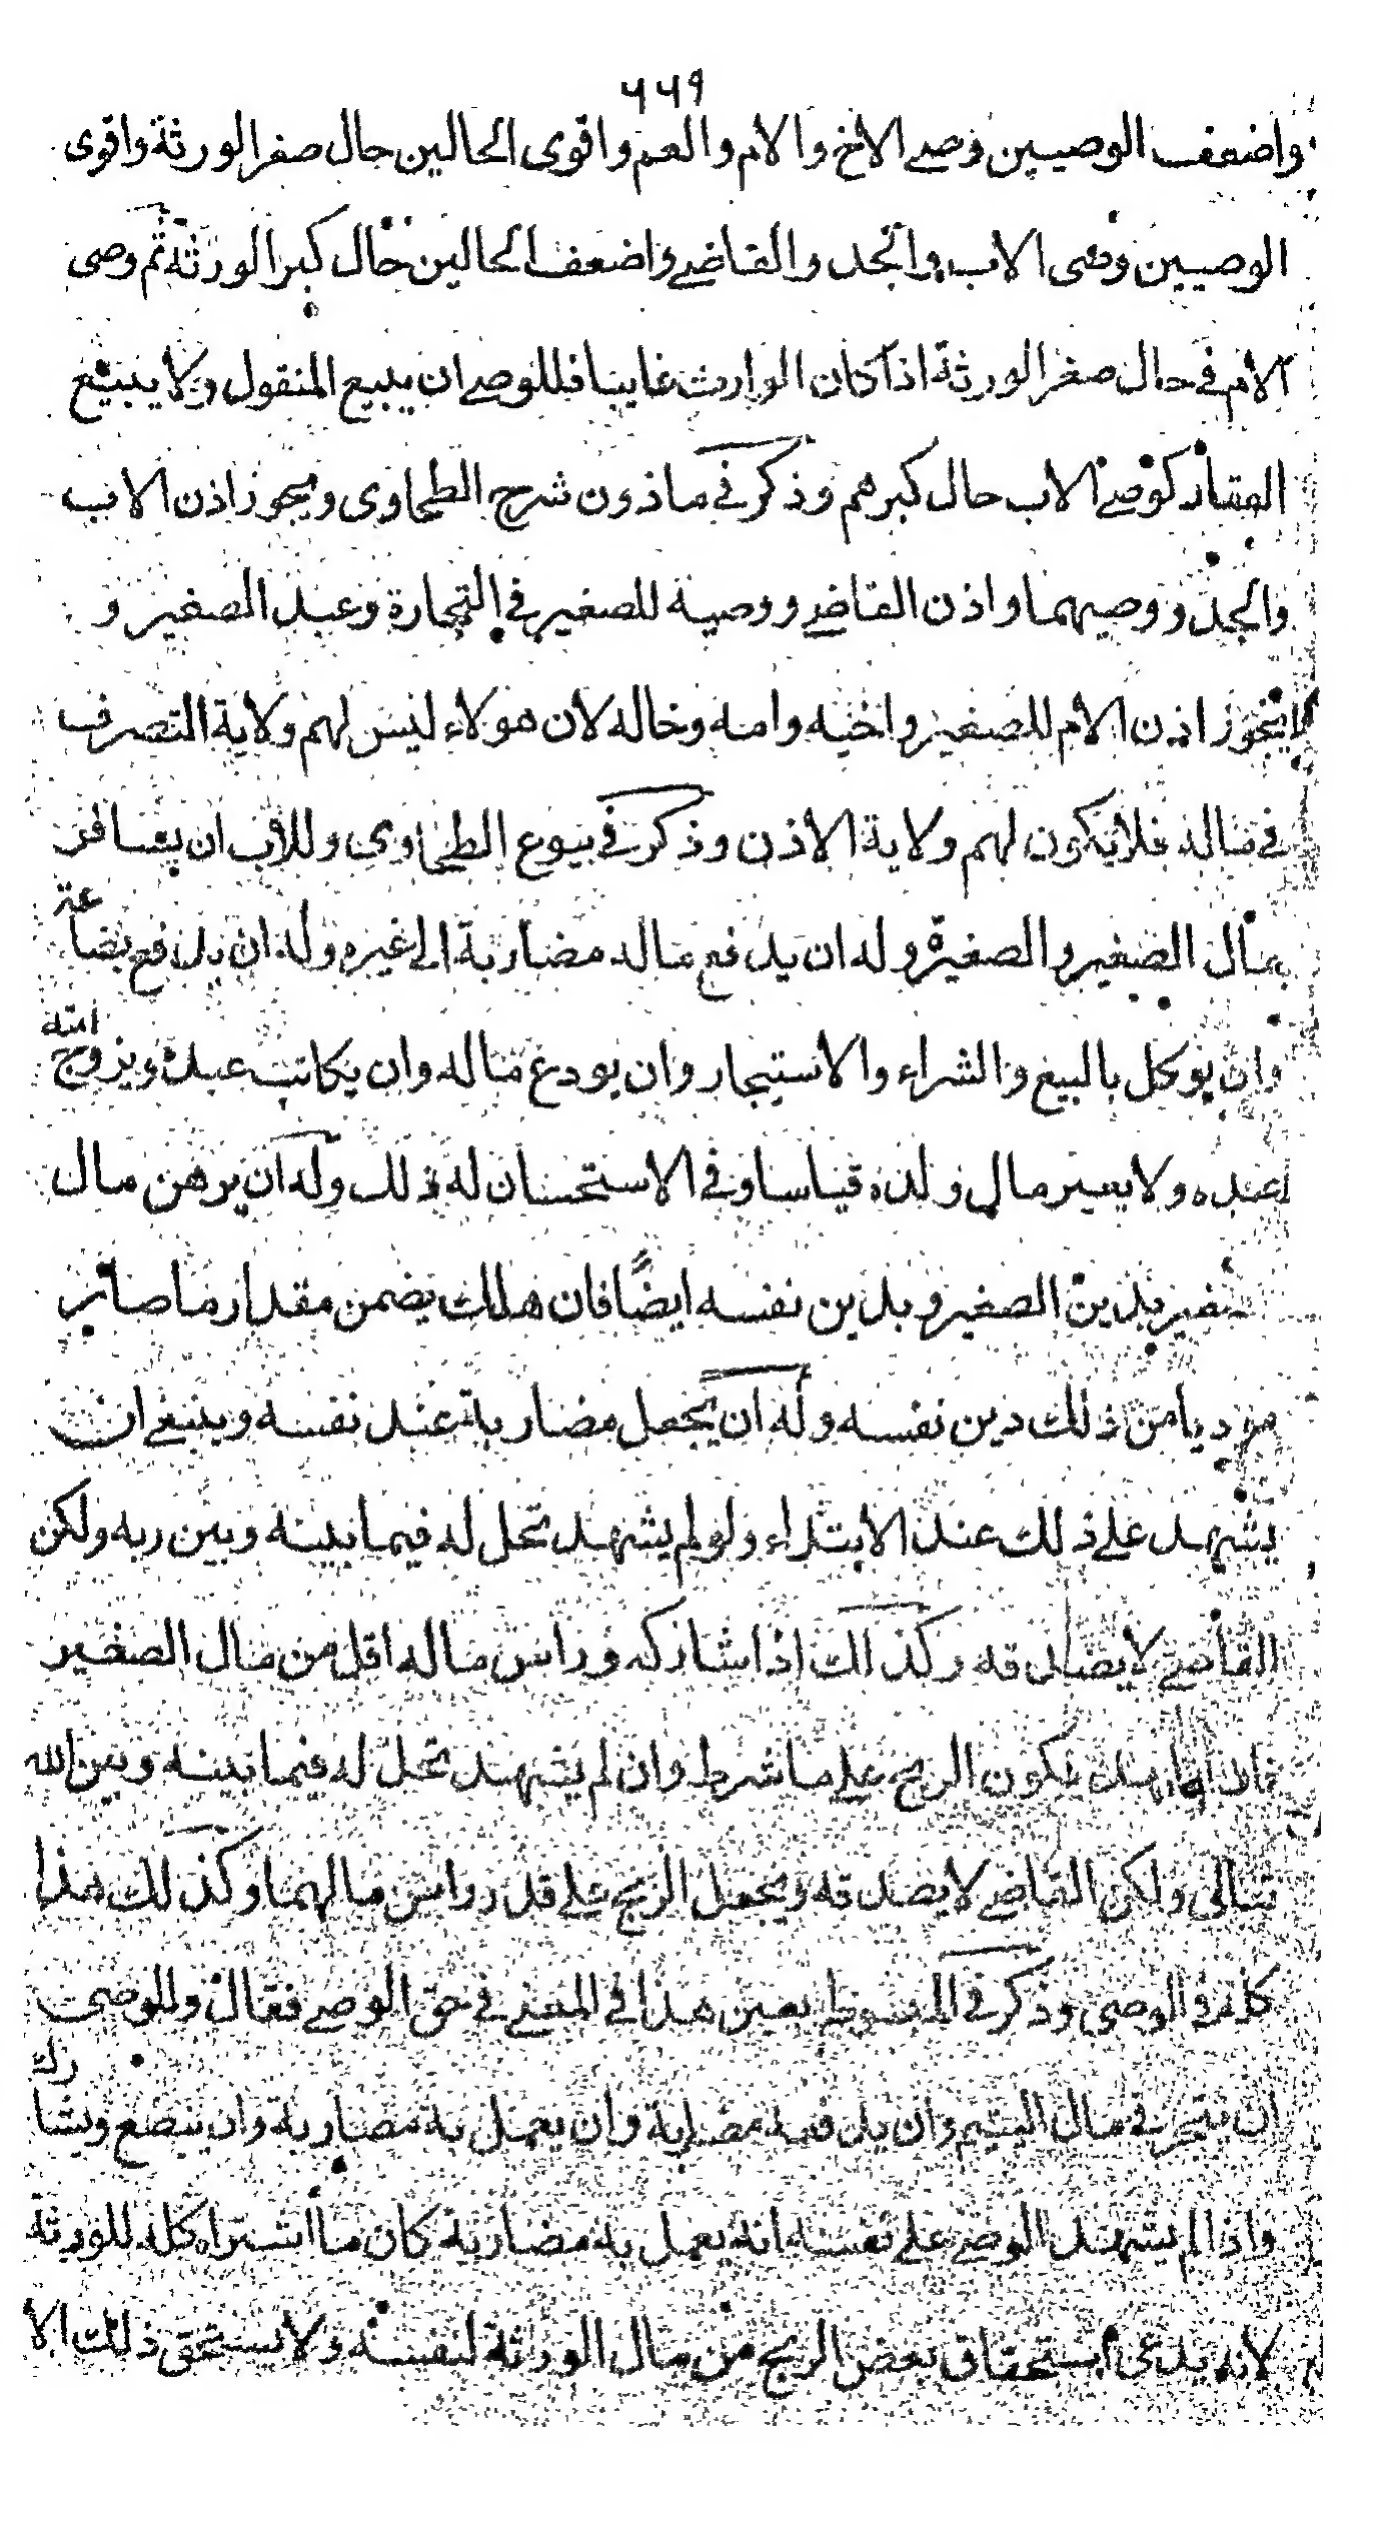 ٦٦٩
واضعف الوصيين وصى الاخ والام والعم واقوى الحالين حال صغر الورثة واقوى
الوصيين وصى الاب والجد والقاضى واضعف الحالين حال كبر الورثة ثم وصى
الام فى حال صغر الورثة اذا كان الوارث غايبا فللوصى ان يبيع المنقول ولا يبيع
العقار كوصى الاب حال كبرهم وذكر فى ماذون شرح الطحاوى ويجوز اذن الاب
والجد ووصيهما واذن القاضى ووصيه للصغير فى التجارة وعبد الصغير و
لا يجوز اذن الام للصغير واخيه وامه وخاله لان هولاء ليس لهم ولاية التصرف
فى ماله فلا يكون لهم ولاية الاذن وذكر فى بيوع الطحاوى وللاب ان يسافر
بمال الصغير والصغيرة وله ان يدفع ماله مضاربة الى غيره وله ان يدفع بضاعة
وان يوكل بالبيع والشراء والاستيجار وان يودع ماله وان يكاتب عبده ويزوج امته
عبده ولا يعير مال ولده قياسا وفى الاستحسان له ذلك وله ان يرهن مال
الصغير بدين الصغير وبدين نفسه ايضًا فان هلك يضمن مقدار ما صار
موديا من ذلك دين نفسه وله ان يجعل مضاربة عند نفسه وينبغى ان
يشهد على ذلك عند الابتداء ولو لم يشهد تحل له فيما بينه وبين ربه ولكن
القاضى لا يصدقه وكذلك اذا شاركه وراس ماله اقل من مال الصغير
فان اشهد يكون الربح على ما شرط وان لم يشهد تحل له فيما بينه وبين الله
تعالى ولكن القاضى لا يصدقه ويجعل الربح على قدر راس مالهما وكذلك هذا
كله فى الوصى وذكر فى المبسوط بعين هذا فى المعنى فى حق الوصى فقال وللوصى
ان يتجر فى مال اليتيم وان يدفعه مضاربة وان يعمل به مضاربة وان يبضع ويشارك
واذا لم يشهد الوصى على نفسه انه يعمل به مضاربة كان ما اشتراه كله للورثة
لانه يدعى استحقاق بعض الربح من مال الورثة لنفسه ولا يستحق ذلك الا